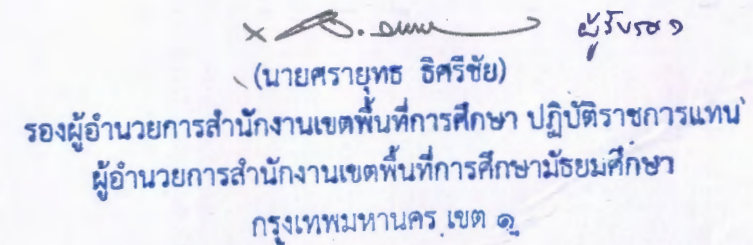 ผู้รับรอง
(นายศรายุทธ ธิศรีชัย)
รองผู้อำนวยการสำนักงานเขตพื้นที่การศึกษา ปฏิบัติราชการแทน
ผู้อำนวยการสำนักงานเขตพื้นที่การศึกษามัธยมศึกษา
กรุงเทพมหานคร เขต ๑